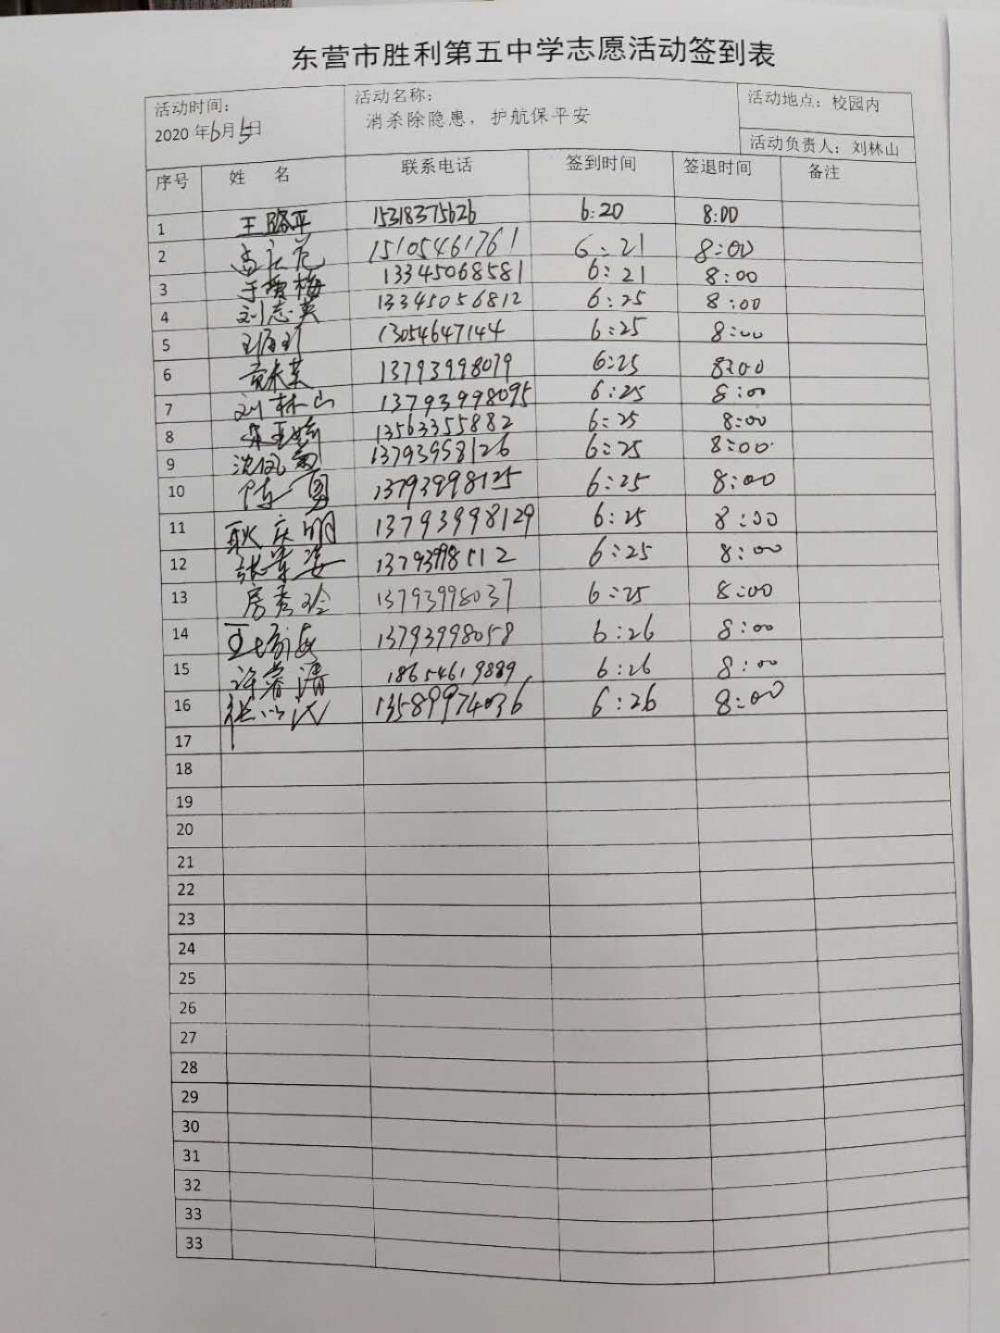 东营市胜利第五中学志愿活动签到表
活动时间：
2020年6月5日
活动名称：
消杀除隐患，护航保平安
活动地点：校园内
活动负责人：刘林山
序号 姓 名 联系电话 签到时间 签退时间 备注
1 王路平 15318375626 6:20 8:00
2 15105461761 6:21 8:00
3 于赞梅 13345068581 6:21 8:00
4 刘志英 13345056812 6:25 8:00
5 13054647144 6:25 8:00
6 13793998079 6:25 8:00
7 刘林山 13793998095 6:25 8:00
8 13563355882 6:25 8:00
9 沈凤菊 13793958126 6:25 8:00
10 陈勇 13793998125 6:25 8:00
11 耿庆明 13793998129 6:25 8:00
12 6:25 8:00
13 房秀玲 13793998037 6:25 8:00
14 13793998058 6:26 8:00
15 许春清 18654619889 6:26 8:00
16 13589974036 6:26 8:00
17
18
19
20
21
22
23
24
25
26
27
28
29
30
31
32
33
33